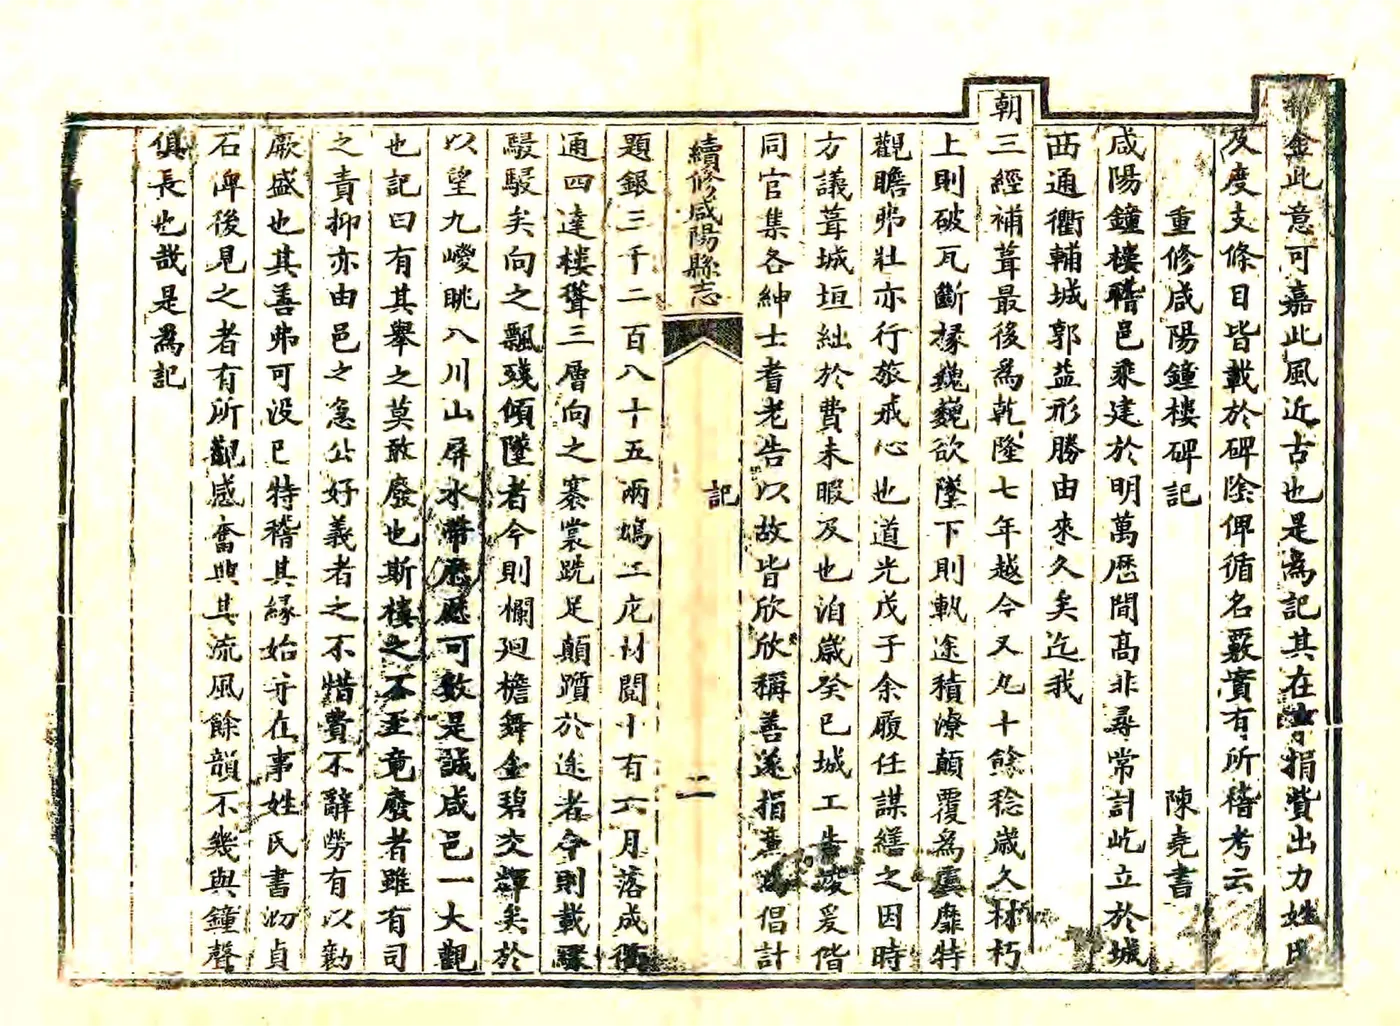 金此意可嘉此風近古也是為記其在事捐貲出力姓氏
及度支條目皆載於碑陰俾循名覈實有所稽考云
重修咸陽鐘樓碑記
陳堯書
咸陽鐘樓稽邑乘建於明萬曆間高非尋常計屹立於城
西通衢輔城郭益形勝由來久矣迄我
朝三經補葺最後為乾隆七年越今又九十餘稔歲久材朽
上則破瓦斷椽巍巍欲墜下則軌途積潦顛覆為虞靡特
觀瞻弗壯亦行旅戒心也道光戊子余履任謀繕之因時
方議葺城垣絀於費未暇及也洎歲癸巳城工告竣爰偕
同官集各紳士耆老告以故皆欣欣稱善遂捐廉為倡計
續修咸陽縣志
記
二
題銀三千二百八十五兩鳩工庀材閱十有六月落成衢
通四達樓聳三層向之褰裳跣足顛躓於途者今則載驟
駸駸矣向之飄殘傾墜者今則欄迴檐舞金碧交輝矣於
以望九嵕眺八川山屏水帶歷歷可數是誠咸邑一大觀
也記曰有其舉之莫敢廢也斯樓之不至竟廢者雖有司
之責抑亦由邑之急公好義者之不惜費不辭勞有以勷
厥盛也其善弗可没已特稽其緣始并在事姓氏書泐貞
石俾後見之者有所觀感奮興其流風餘韻不幾與鐘聲
俱長也哉是為記